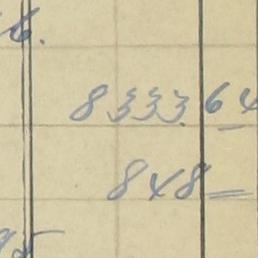 6.
8333.64
848 =
95